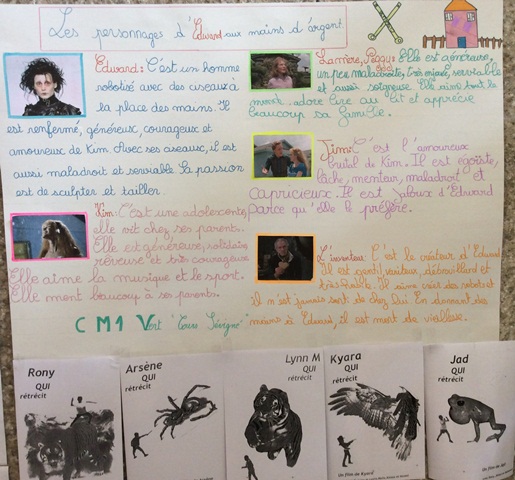 Les personnages d'Edward aux mains d'argent.
Edward: C'est un homme
robotisé avec des ciseaux à
la place des mains. Il
est renfermé, généreux, courageux et
amoureux de Kim. Avec ses ciseaux, il est
aussi maladroit et serviable. Sa passion
est de sculpter et tailler.
Kim: C'est une adolescente,
elle vit chez ses parents.
Elle est généreuse, solitaire,
rêveuse et très courageuse
Elle aime la musique et le sport.
Elle ment beaucoup à ses parents.
CM1 Vert "Tour Sévigné"
La mère, Peggy: Elle est généreuse,
un peu maladroite, très mijoté, serviable
et aussi soigneuse. Elle aime tout le
monde, adore lire au lit et apprécie
beaucoup sa famille.
Jim: C'est l'amoureux
brutal de Kim. Il est égoïste,
lâche, menteur, maladroit et
capricieux. Il est jaloux d'Edward
parce qu'elle le préfère.
L'inventeur: C'est le créateur d'Edward.
Il est gentil, débrouillard et
très habile. Il aime créer des robots et
il n'est jamais sorti de chez lui. En donnant des
mains à Edward, il est mort de vieillesse.
Rony
QUI
rétrécit
Arsène
QUI
rétrécit
Lynn M
QUI
rétrécit
Kyara
QUI
rétrécit
Un film de Kyara
Jad
QUI
rétrécit
Un film de Jad